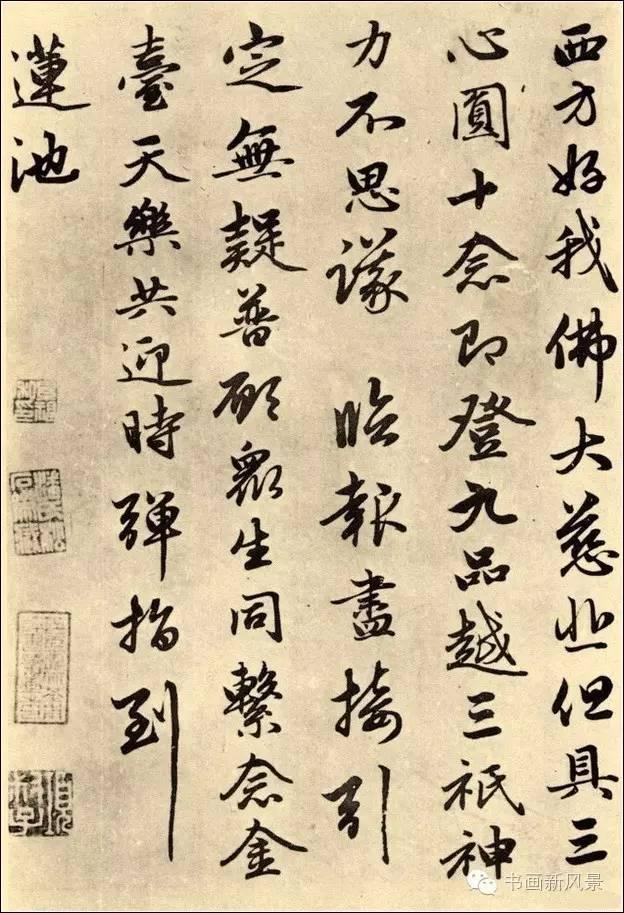 西方好我佛大慈悲但具三
心圓十念即登九品越三祇神
力不思議 臨報盡接引
定無疑普願衆生同繫念金
臺天樂共迎時彈指到
蓮池
书画新风景